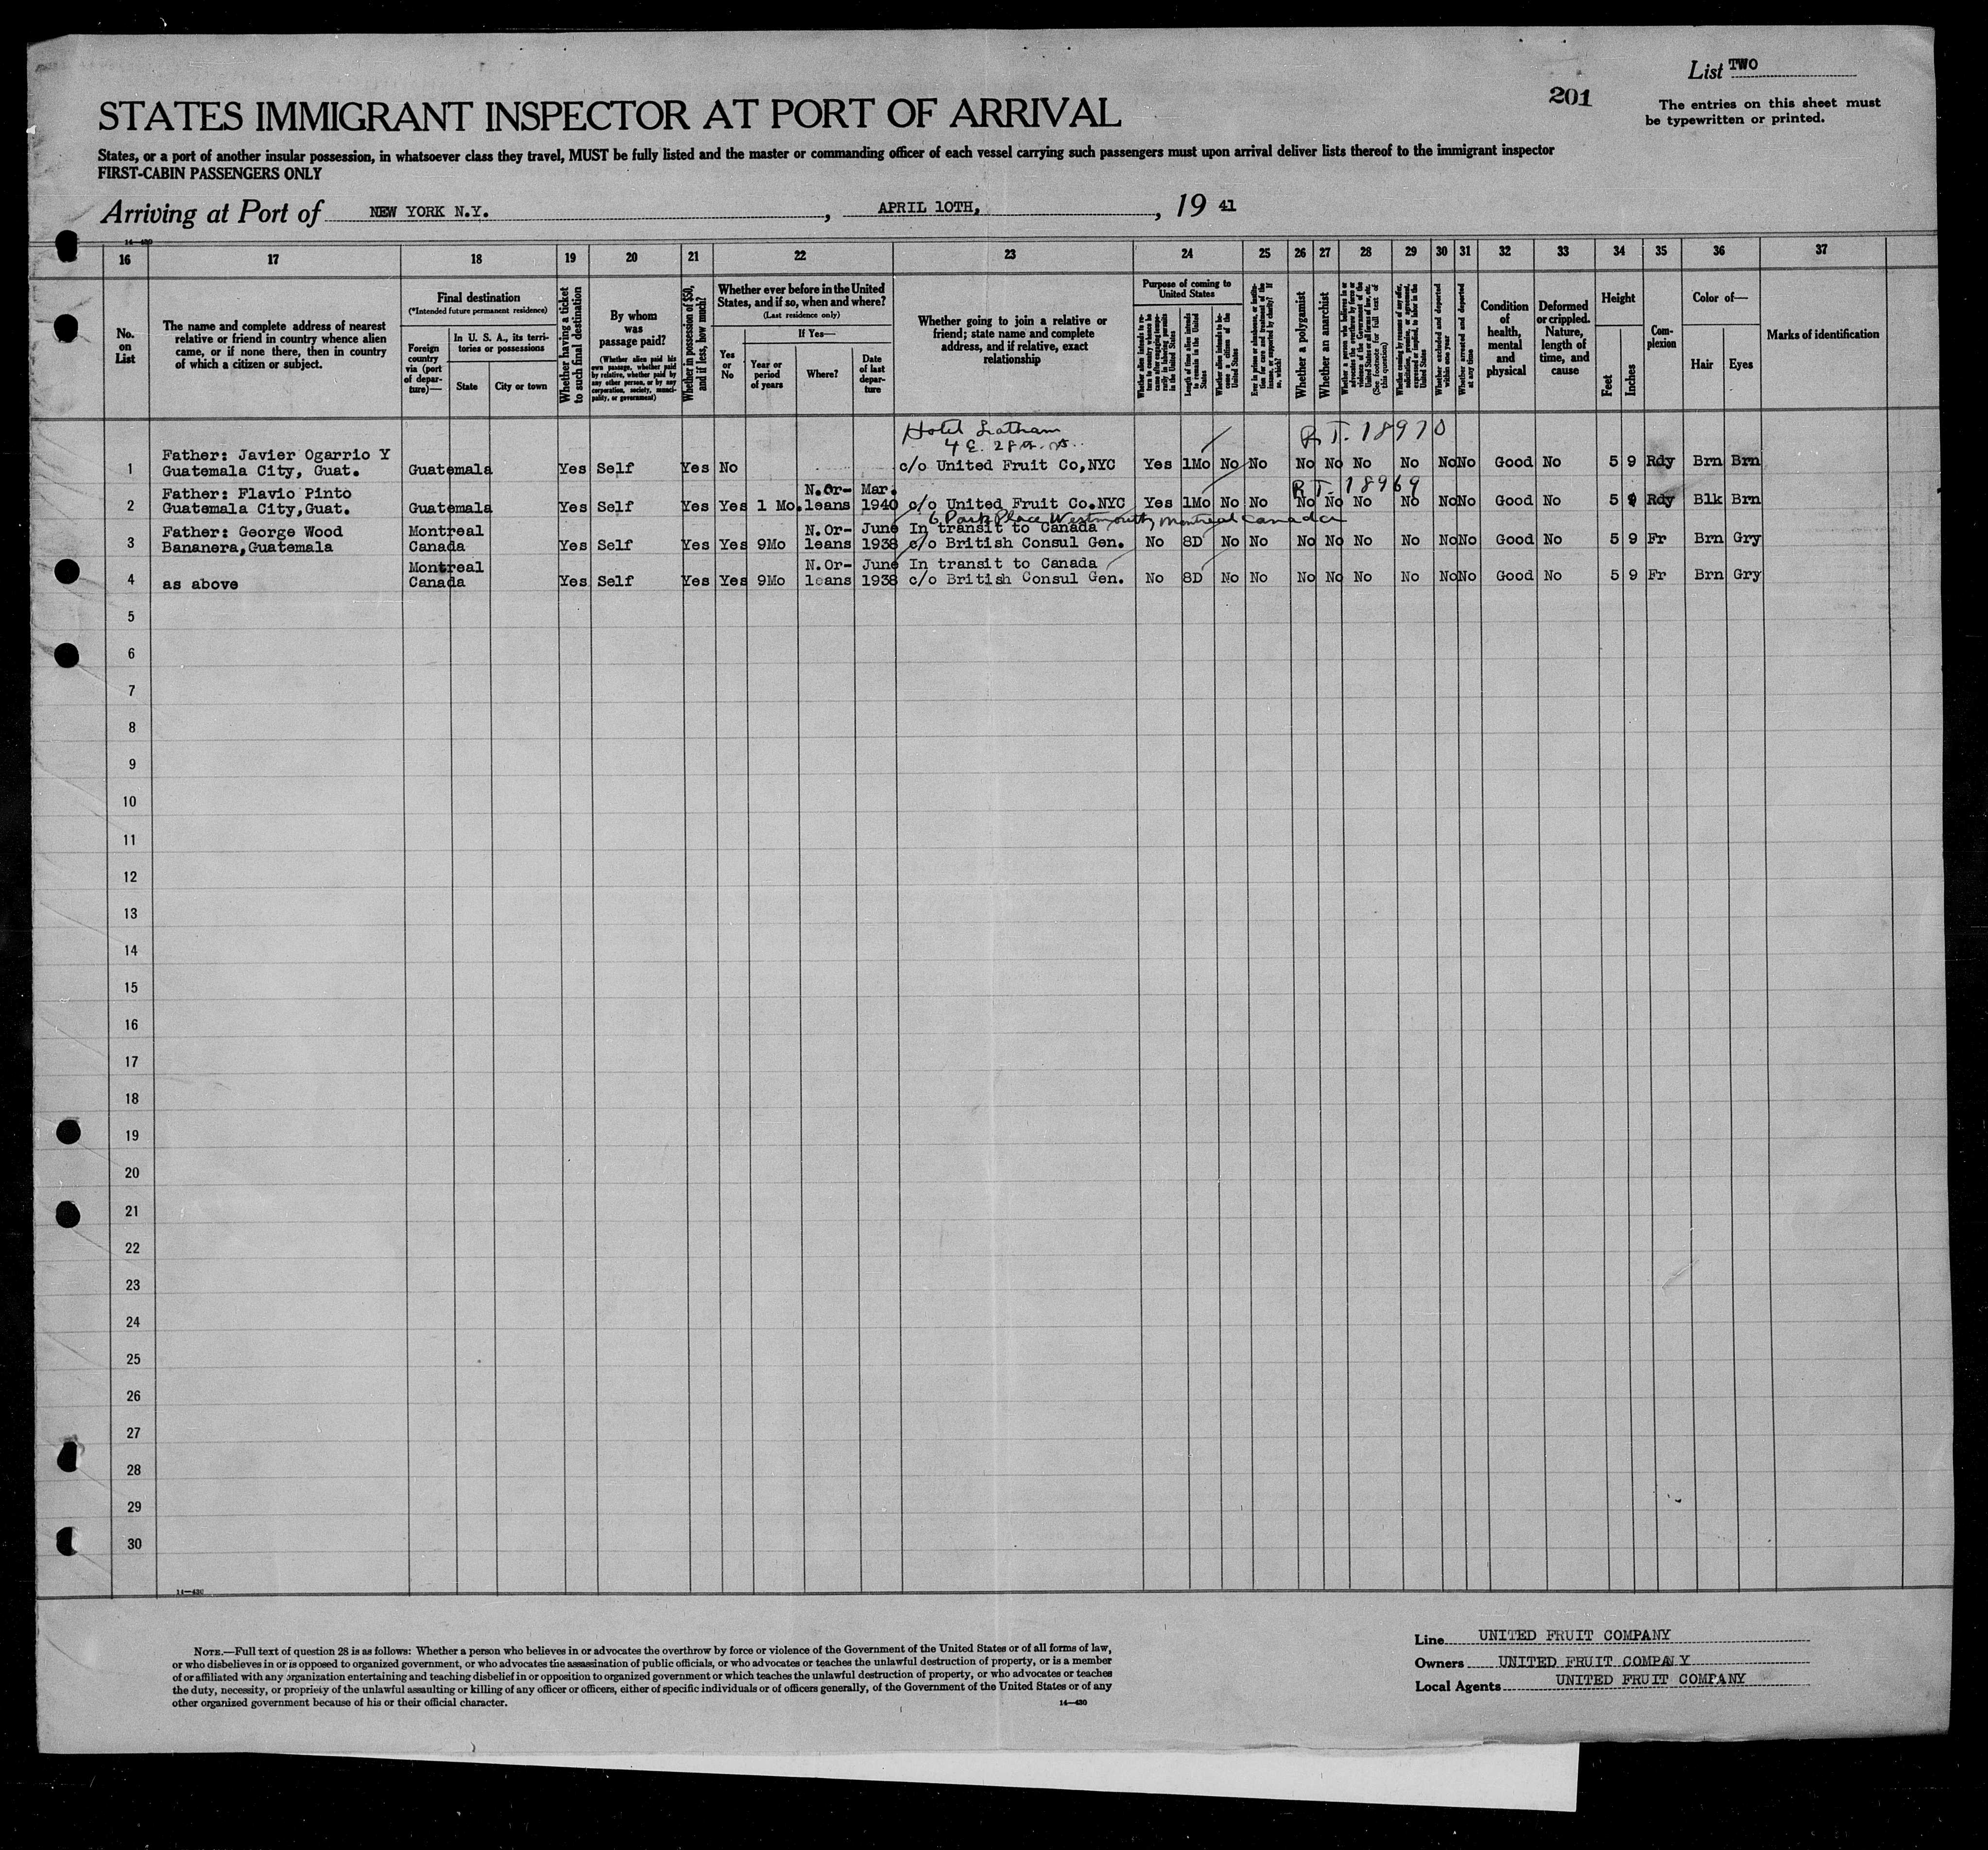 List TWO
201
The entries on this sheet must
be typewritten or printed.
STATES IMMIGRANT INSPECTOR AT PORT OF ARRIVAL
States, or a port of another insular possession, in whatsoever class they travel, MUST be fully listed and the master or commanding officer of each vessel carrying such passengers must upon arrival deliver lists thereof to the immigrant inspector
FIRST-CABIN PASSENGERS ONLY
Arriving at Port of NEW YORK N.Y. , APRIL 10TH, , 19 41
14-430
16 17 18 19 20 21 22 23 24 25 26 27 28 29 30 31 32 33 34 35 36 37
No.
on
List
The name and complete address of nearest
relative or friend in country whence alien
came, or if none there, then in country
of which a citizen or subject.
Final destination
(*Intended future permanent residence)
Foreign
country
via (port
of depar-
ture)—
In U. S. A., its terri-
tories or possessions
State
City or town
Whether having a ticket
to such final destination
By whom
was
passage paid?
(Whether alien paid his
own passage, whether paid
by relative, whether paid by
any other person, or by any
corporation, society, munici-
pality, or government)
Whether in possession of $50,
and if less, how much?
Whether ever before in the United
States, and if so, when and where?
(Last residence only)
Yes
or
No
If Yes—
Year or
period
of years
Where?
Date
of last
depar-
ture
Whether going to join a relative or
friend; state name and complete
address, and if relative, exact
relationship
Purpose of coming to
United States
Length of time alien intends
to remain in the United
States
Whether alien intends to be-
come a citizen of the
United States
Whether a polygamist
Whether an anarchist
(See footnote for full text of
this question)
Whether excluded and deported
within one year
Whether arrested and deported
at any time
Condition
of
health,
mental
and
physical
Deformed
or crippled.
Nature,
length of
time, and
cause
Height
Feet
Inches
Com-
plexion
Color of—
Hair
Eyes
Marks of identification
Hotel Latham
4 E. 28th St.
R.T. 18970
1 Father: Javier Ogarrio Y
Guatemala City, Guat. Guatemala Yes Self Yes No c/o United Fruit Co,NYC Yes 1Mo No No No No No No No No Good No 5 9 Rdy Brn Brn
R.T. 18969
2 Father: Flavio Pinto N.Or- Mar.
Guatemala City,Guat. Guatemala Yes Self Yes Yes 1 Mo. leans 1940 c/o United Fruit Co.NYC Yes 1Mo No No No No No No No No Good No 5 9 Rdy Blk Brn
6 Park Place Westmouth, Montreal Canada
3 Father: George Wood Montreal N.Or- June In transit to Canada
Bananera,Guatemala Canada Yes Self Yes Yes 9Mo leans 1938 c/o British Consul Gen. No 8D No No No No No No No No Good No 5 9 Fr Brn Gry
Montreal N.Or- June In transit to Canada
4 as above Canada Yes Self Yes Yes 9Mo leans 1938 c/o British Consul Gen. No 8D No No No No No No No No Good No 5 9 Fr Brn Gry
5
6
7
8
9
10
11
12
13
14
15
16
17
18
19
20
21
22
23
24
25
26
27
28
29
30
14-430
NOTE.—Full text of question 28 is as follows: Whether a person who believes in or advocates the overthrow by force or violence of the Government of the United States or of all forms of law,
or who disbelieves in or is opposed to organized government, or who advocates the assassination of public officials, or who advocates or teaches the unlawful destruction of property, or is a member
of or affiliated with any organization entertaining and teaching disbelief in or opposition to organized government or which teaches the unlawful destruction of property, or who advocates or teaches
the duty, necessity, or propriety of the unlawful assaulting or killing of any officer or officers, either of specific individuals or of officers generally, of the Government of the United States or of any
other organized government because of his or their official character.
14-430
Line UNITED FRUIT COMPANY
Owners UNITED FRUIT COMPANY
Local Agents UNITED FRUIT COMPANY